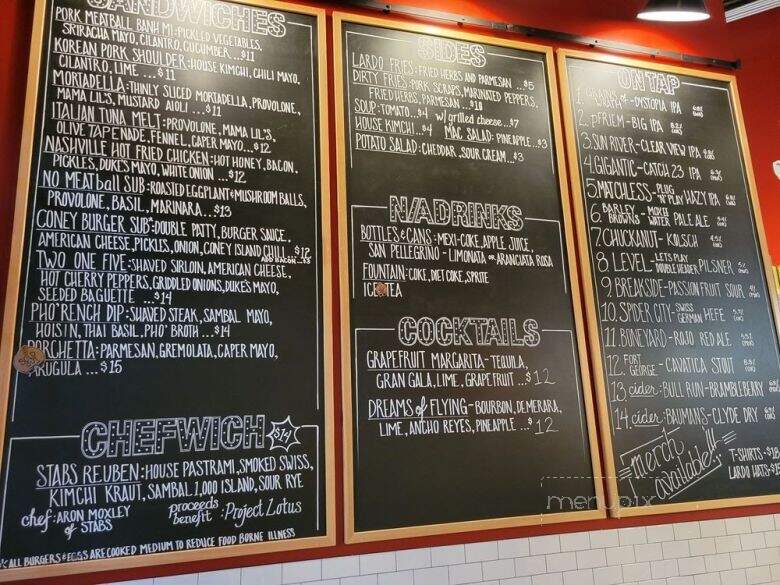 SANDWICHES
PORK MEATBALL BANH MI: PICKLED VEGETABLES,
SRIRACHA MAYO, CILANTRO, CUCUMBER ...$11
KOREAN PORK SHOULDER: HOUSE KIMCHI, CHILI MAYO,
CILANTRO, LIME ...$11
MORTADELLA: THINLY SLICED MORTADELLA, PROVOLONE,
MAMA LIL'S, MUSTARD AIOLI ...$11
ITALIAN TUNA MELT: PROVOLONE, MAMA LIL'S,
OLIVE TAPENADE, FENNEL, CAPER MAYO...$12
NASHVILLE HOT FRIED CHICKEN: HOT HONEY, BACON,
PICKLES, DUKE'S MAYO, WHITE ONION ...$12
NO MEATball SUB: ROASTED EGGPLANT & MUSHROOM BALLS,
PROVOLONE, BASIL, MARINARA ...$13
CONEY BURGER SUB: DOUBLE PATTY, BURGER SAUCE,
AMERICAN CHEESE, PICKLES, ONION, CONEY ISLAND CHILI ...$12
ADD BACON
TWO ONE FIVE: SHAVED SIRLOIN, AMERICAN CHEESE,
HOT CHERRY PEPPERS, GRIDDLED ONIONS, DUKE'S MAYO,
SEEDED BAGUETTE ...$14
PHO'RENCH DIP: SHAVED STEAK, SAMBAL MAYO,
HOISIN, THAI BASIL, PHO' BROTH ...$14
PORCHETTA: PARMESAN, GREMOLATA, CAPER MAYO,
ARUGULA ...$15
CHEFWICH $14
STABS REUBEN: HOUSE PASTRAMI, SMOKED SWISS,
KIMCHI KRAUT, SAMBAL 1,000 ISLAND, SOUR RYE
chef: ARON MOXLEY of STABS
proceeds benefit: Project Lotus
*ALL BURGERS & EGGS ARE COOKED MEDIUM TO REDUCE FOOD BORNE ILLNESS
SIDES
LARDO FRIES: FRIED HERBS AND PARMESAN ...$5
DIRTY FRIES: PORK SCRAPS, MARINATED PEPPERS,
FRIED HERBS, PARMESAN ...$10
SOUP: TOMATO ..$4 w/ grilled cheese ..$7
HOUSE KIMCHI ..$4 MAC SALAD: PINEAPPLE...$3
POTATO SALAD: CHEDDAR, SOUR CREAM...$3
N/A DRINKS
BOTTLES & CANS: MEXI-COKE, APPLE JUICE,
SAN PELLEGRINO - LIMONATA OR ARANCIATA ROSA
FOUNTAIN: COKE, DIET COKE, SPRITE
ICED TEA
COCKTAILS
GRAPEFRUIT MARGARITA - TEQUILA,
GRAN GALA, LIME, GRAPEFRUIT ...$12
DREAMS of FLYING - BOURBON, DEMERARA,
LIME, ANCHO REYES, PINEAPPLE ...$12
ON TAP
1. GRAINS of - DYSTOPIA IPA
2. PFRIEM - BIG IPA
3. SUN RIVER - CLEAR VIEW IPA
4. GIGANTIC - CATCH 23 IPA
5. MATCHLESS - PLUG 'N' PLAY HAZY IPA
6. BARLEY BROWNS - MOXIE WATER PALE ALE
7. CHUCKANUT - KOLSCH
8. LEVEL - LETS PLAY DOUBLE HEADER PILSNER
9. BREAKSIDE - PASSION FRUIT SOUR
10. SPYDER CITY - SWISS GERMAN HEFE
11. BONEYARD - ROJO RED ALE
12. FORT GEORGE - CAVATICA STOUT
13. cider: BULL RUN - BRAMBLEBERRY
14. cider: BAUMANS - CLYDE DRY
merch available!!!
T-SHIRTS - $18
LARDO HATS -
menupix